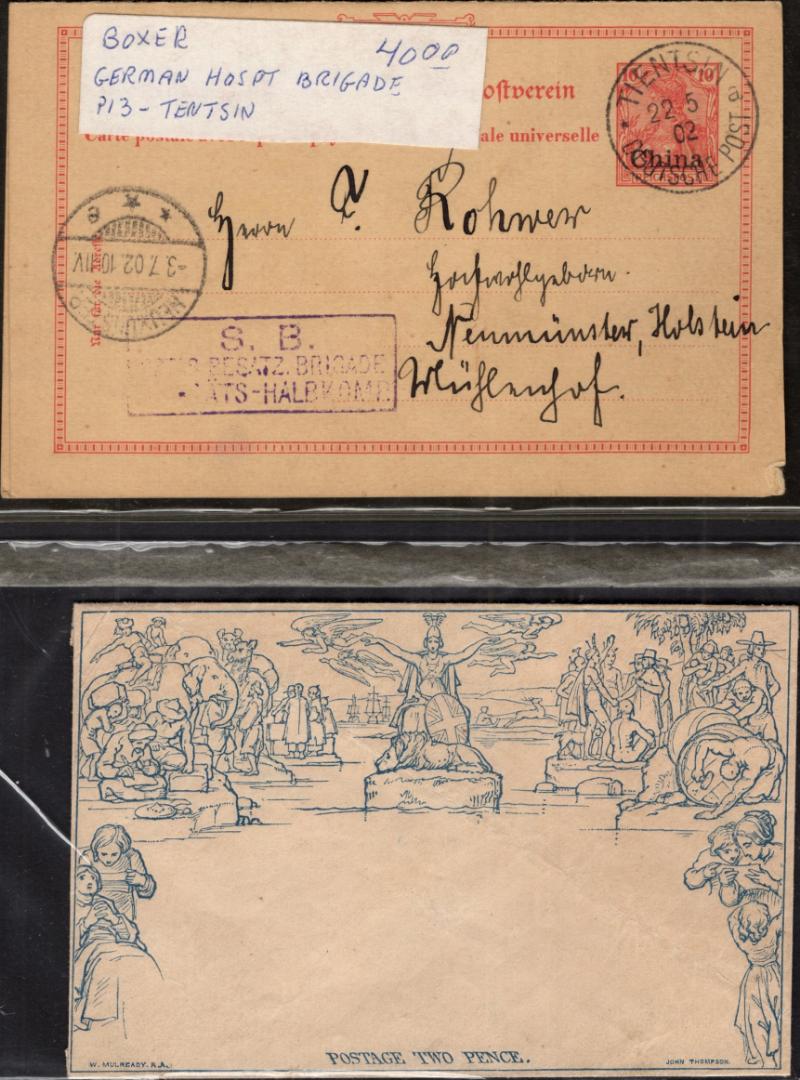 BOXER 4000
GERMAN HOSPT BRIGADE
P13 - TENTSIN
Postverein
ale universelle
10
China
TIENTSIN
22 5
02
DEUTSCHE POST
-3.7.02.10-11V.
Herrn Rohwer
Hochwohlgeborn.
Neumünster, Holstein
Mühlenhof.
S. B.
BESATZ. BRIGADE
ÄTS-HALBKOMP.
POSTAGE TWO PENCE.
W. MULREADY. R.A.
JOHN THOMPSON.